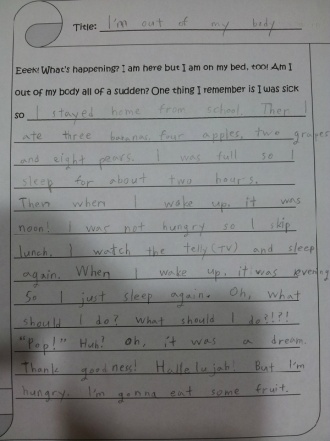 Title: I'm out of my body
Eeek! What's happening? I am here but I am on my bed, too! Am I
out of my body all of a sudden? One thing I remember is I was sick
so I stayed home from school. Then I
ate three bananas, four apples, two grapes
and eight pears. I was full so I
sleep for about two hours.
Then when I wake up, it was
noon! I was not hungry so I skip
lunch. I watch the telly (TV) and sleep
again. When I wake up, it was evening
So I just sleep again. Oh, what
should I do? What should I do?!?!
"Pop!" Huh? Oh, it was a dream.
Thank goodness! Hallelujah! But I'm
hungry. I'm gonna eat some fruit.